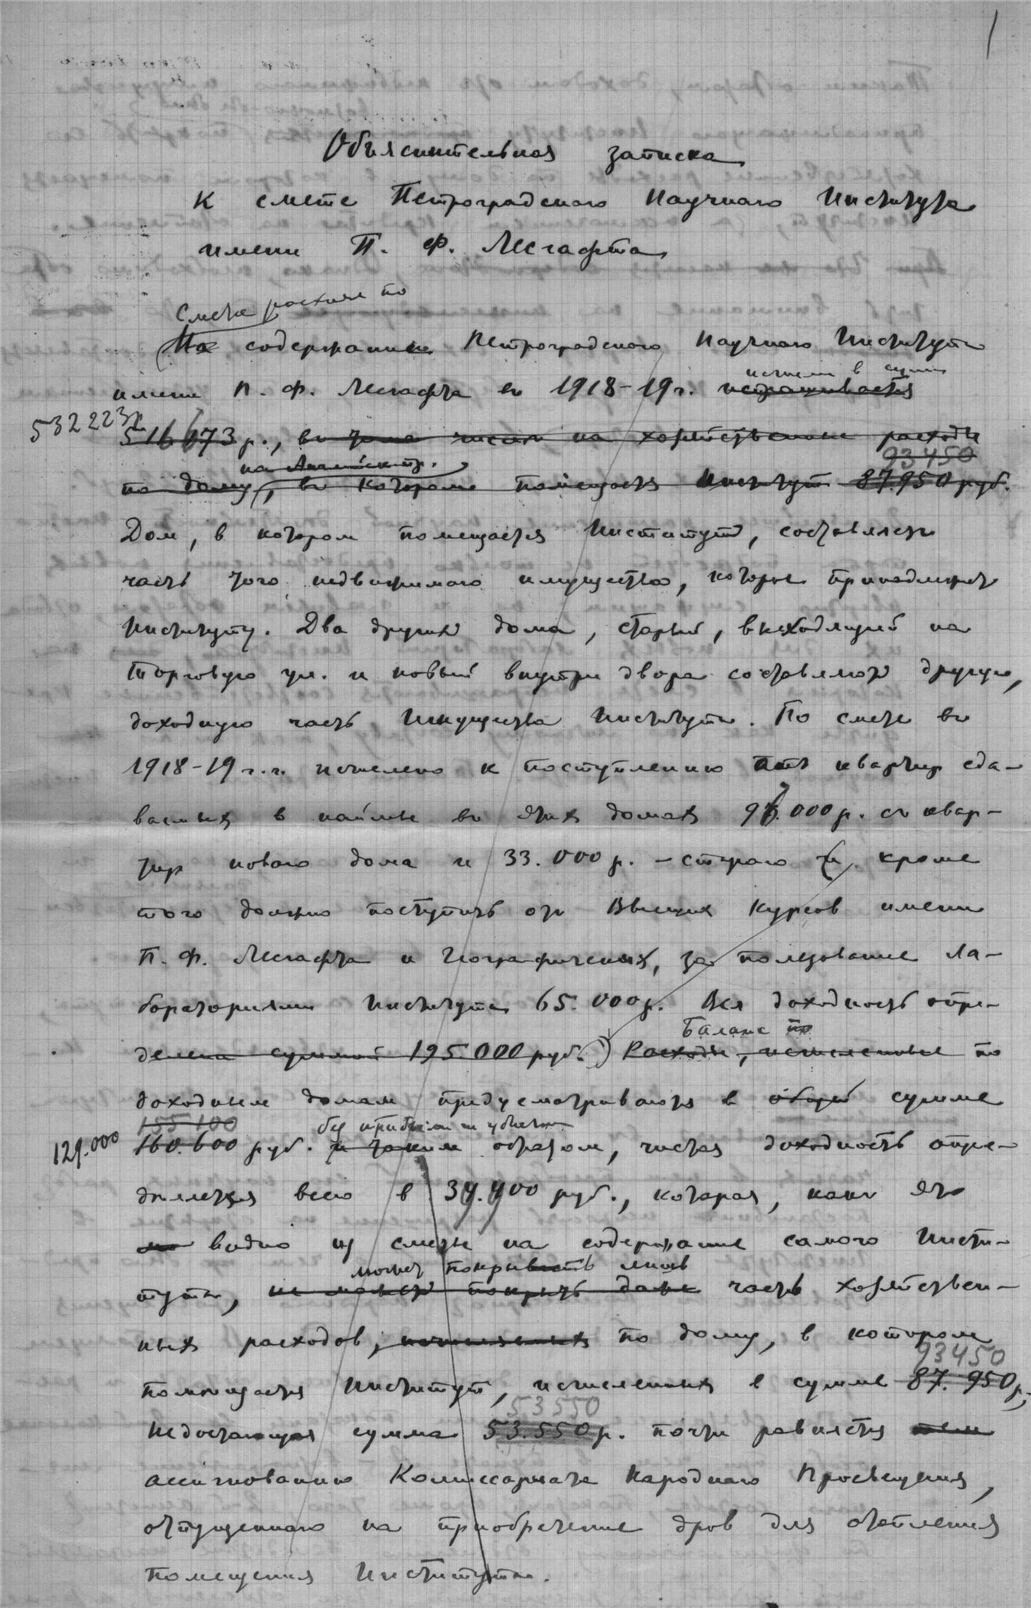 1
Объяснительная записка
к смете Петроградского Научного Института
имени П. Ф. Лесгафта
Смета расхода по
На содержание Петроградского Научного Института
исчислен в сумме
имени П. Ф. Лесгафта в 1918-19 г. испрашивается
532223
516673 р., в том числе на хозяйственные расходы
93450
на Английск. пр.
по дому, в котором помещается Институт 87.950 руб.
Дом, в котором помещается Институт, составляет
часть того недвижимого имущества, которое принадлежит
Институту. Два других дома, старый, выходящий на
Торговую ул. и новый внутри двора составляют другую,
доходную часть Имущества Института. По смете в
1918-19 г.г. исчислено к поступлению от квартир сда-
ваемых в наймы в этих домах 97.000 р. с квар-
тир нового дома и 33.000 р. - старого и кроме
того должно поступить от Высших Курсов имени
П. Ф. Лесгафта и Географических, за пользование ла-
бораториями Института 65.000 р. Вся доходность опре-
Баланс по
делена суммой 195000 руб.) Расходы, исчисленные по
доходным домам предусматриваются в общей сумме
155100
без прибыли и убытков
129.000 160.600 руб. и таким образом, чистая доходность опре-
деляется всего в 39.900 руб., которая, как это
видно из сметы на содержание самого Инсти-
может покрывать лишь
тута, не может покрыть даже часть хозяйствен-
ных расходов, исчисленных по дому, в котором
93450
помещается Институт, исчисленных в сумме 87.950 р.,
53550
Недостающая сумма 53.550 р. почти равняется
ассигнованию Комиссариата Народного Просвещения,
отпущенного на приобретение дров для отопления
помещения Института.